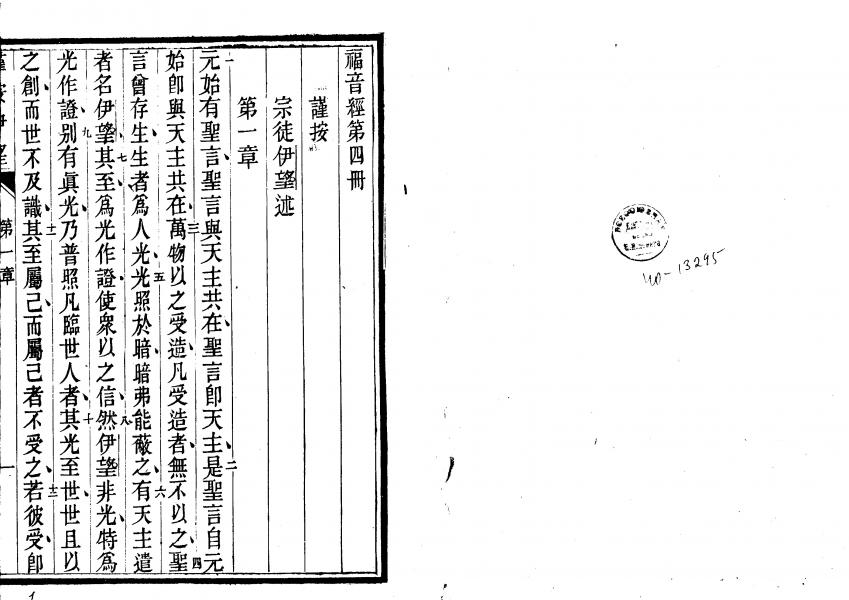 福音經第四冊
謹按
宗徒伊望述
第一章
一元始有聖言、聖言與天主共在、聖言卽天主、二是聖言自元
始卽與天主共在、三萬物以之受造、凡受造者、無不以之、四聖
言曾存生、生者爲人光、五光照於暗、暗弗能蔽之、六有天主遣
者、名伊望、七其至爲光作證、使衆以之信、八然伊望非光、特爲
光作證、九別有眞光、乃普照凡臨世人者、十其光至世、世且以
之創、而世不及識、十一其至屬己、而屬己者不受之、十二若彼受、卽
第一章
一
40-13295
1